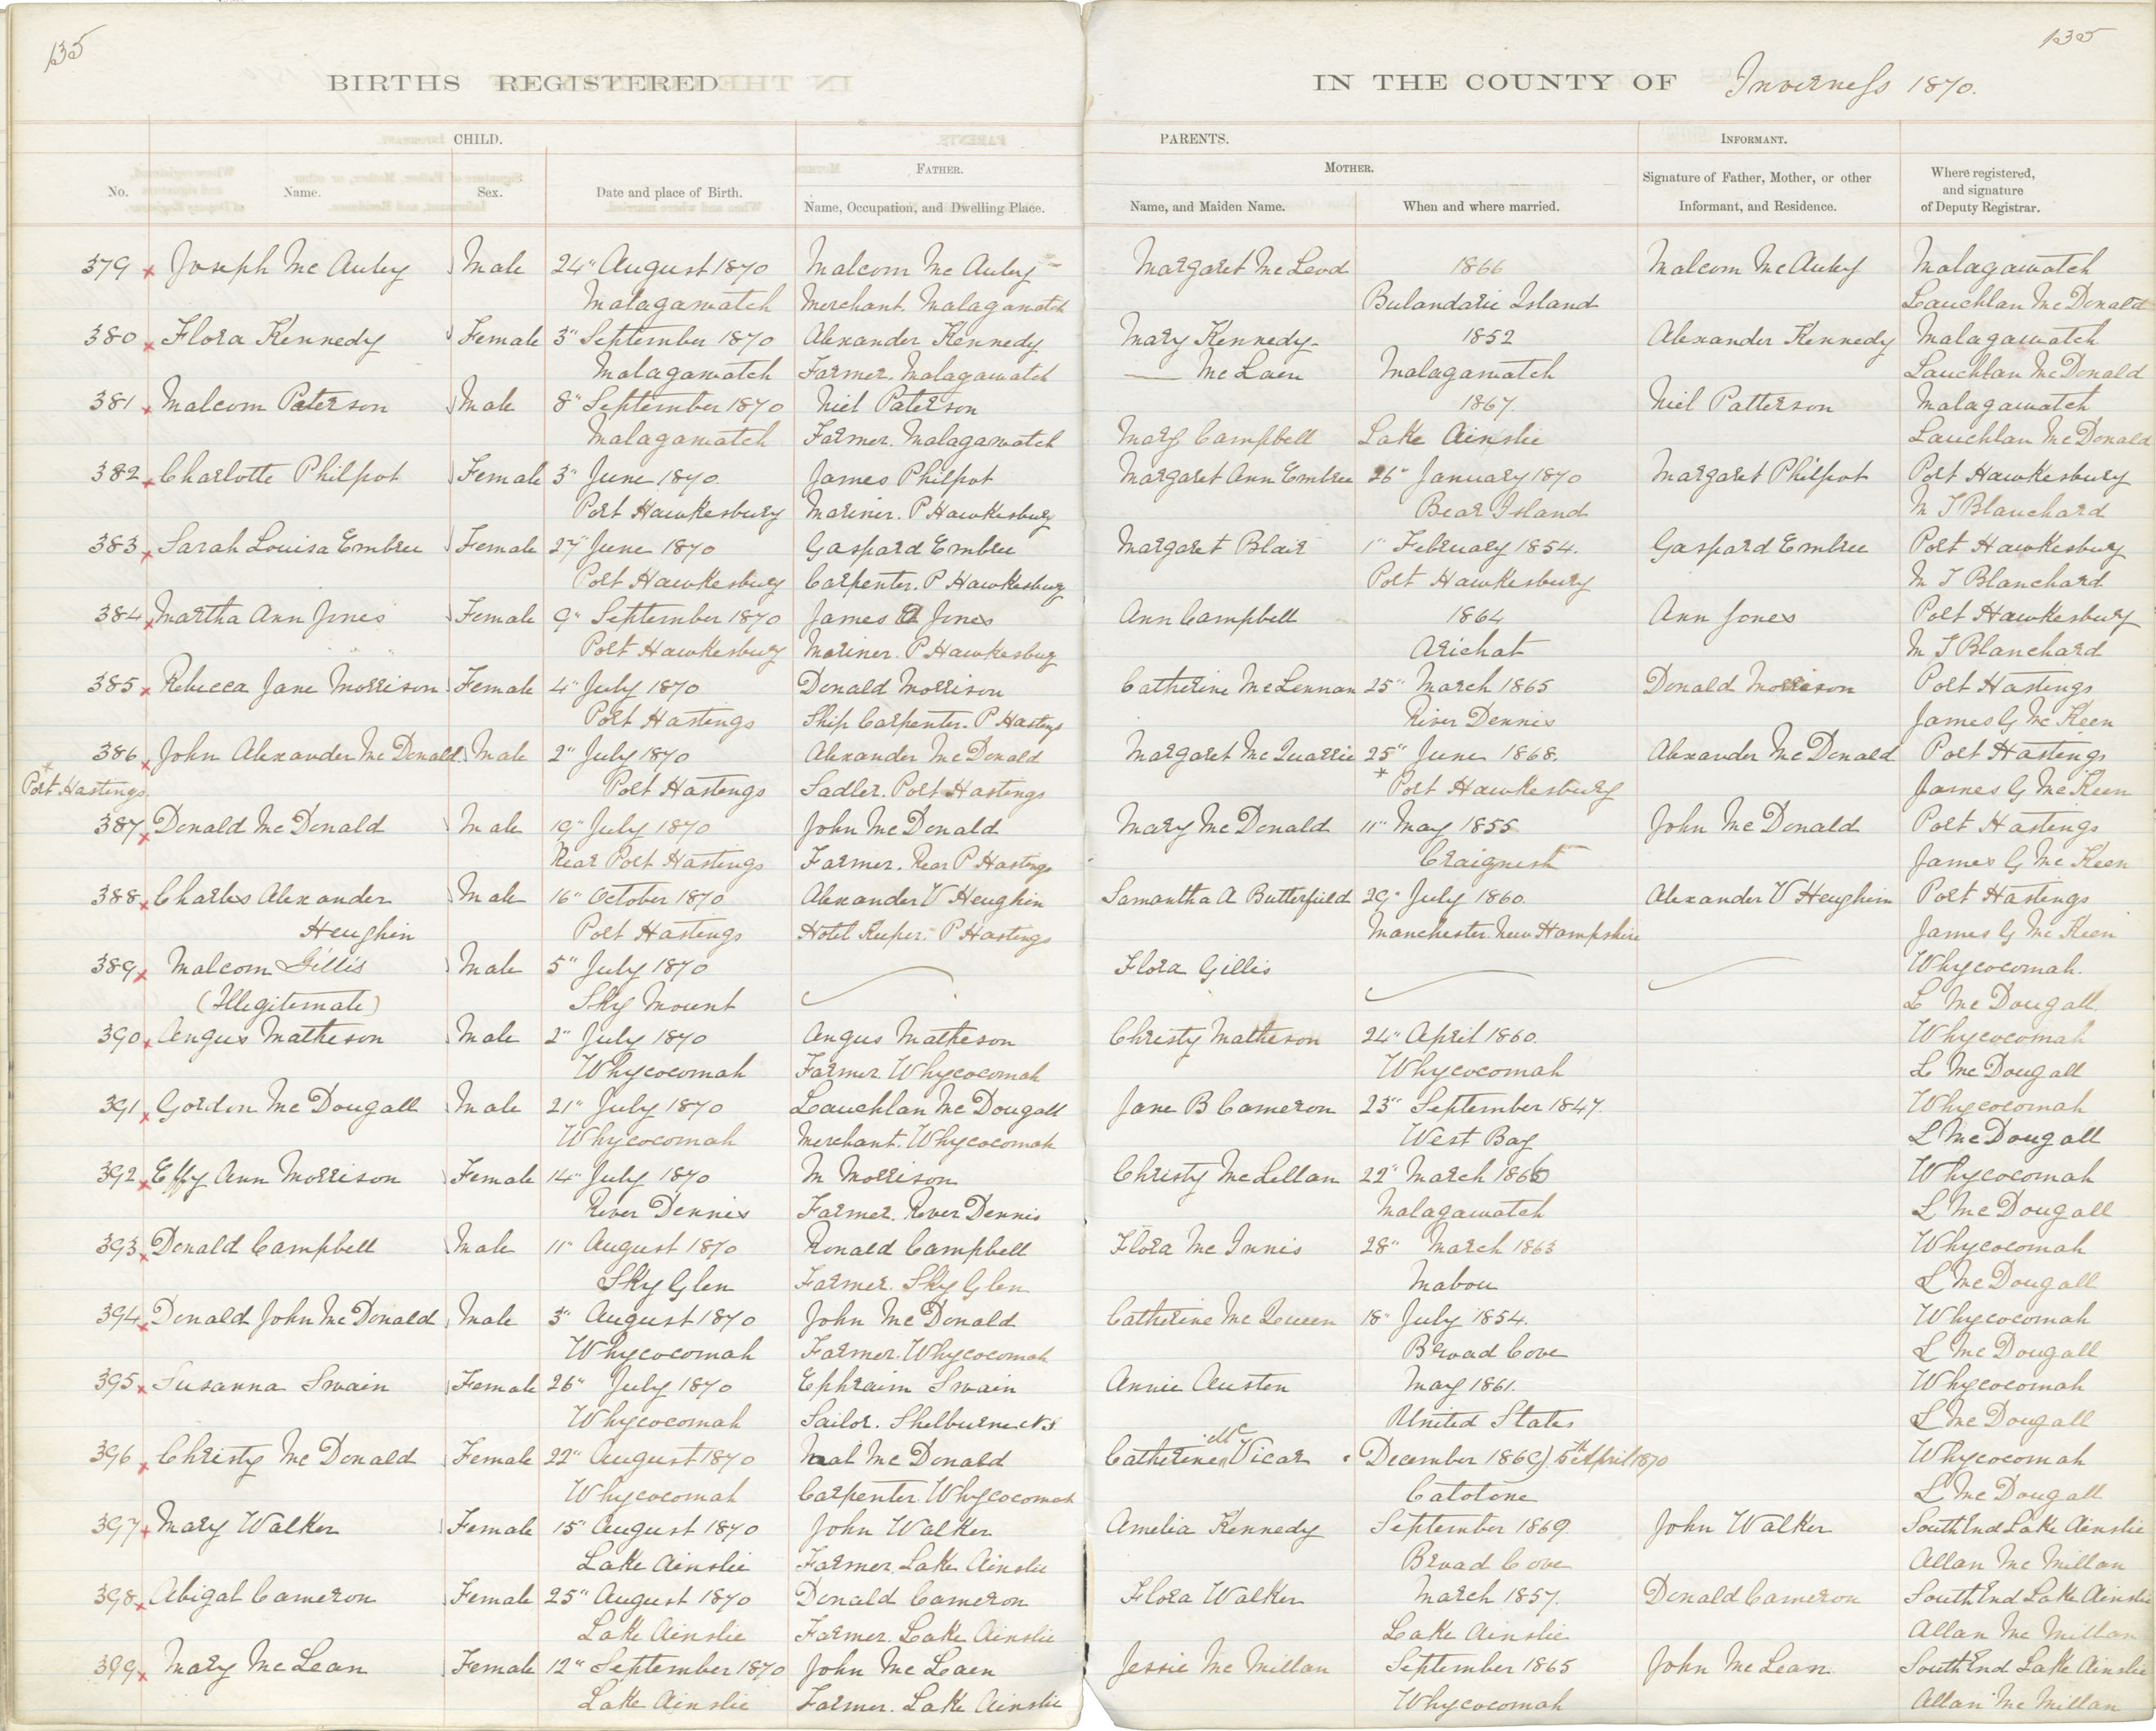 135
135
BIRTHS REGISTERED
IN THE COUNTY OF Inverness 1870.
CHILD.
PARENTS.
INFORMANT.
No.
Name.
Sex.
Date and place of Birth.
FATHER.
Name, Occupation, and Dwelling Place.
MOTHER.
Name, and Maiden Name.
When and where married.
Signature of Father, Mother, or other
Informant, and Residence.
Where registered,
and signature
of Deputy Registrar.
379 x Joseph Mc Auley Male 24" August 1870 Malcom Mc Auley Margaret McLeod 1866 Malcom McAuley Malagawatch
Malagawatch Merchant. Malagawatch Bulandarie Island Lauchlan McDonald
380 x Flora Kennedy Female 3" September 1870 Alexander Kennedy Mary Kennedy 1852 Alexander Kennedy Malagawatch
Malagawatch Farmer. Malagawatch — McLaen Malagawatch Lauchlan McDonald
381 x Malcom Paterson Male 8" September 1870 Niel Paterson 1867. Niel Patterson Malagawatch
Malagawatch Farmer. Malagawatch Mary Campbell Lake Ainslie Lauchlan McDonald
382 x Charlotte Philpot Female 3" June 1870. James Philpot Margaret Ann Embree 26" January 1870 Margaret Philpot Port Hawkesbury
Port Hawkesbury Mariner. P Hawkesbury Bear Island M J Blanchard
383 x Sarah Louisa Embree Female 27" June 1870 Gaspard Embree Margaret Blair 1" February 1854. Gaspard Embree Port Hawkesbury
Port Hawkesbury Carpenter. P Hawkesbury Port Hawkesbury M J Blanchard
384 x Martha Ann Jones Female 9" September 1870 James Jones Ann Campbell 1864 Ann Jones Port Hawkesbury
Port Hawkesbury Mariner. P Hawkesbury Arichat M J Blanchard
385 x Rebecca Jane Morrison Female 4" July 1870 Donald Morrison Catherine McLennan 25" March 1865 Donald Morrison Port Hastings
Port Hastings Ship Carpenter. P Hastings River Dennis James G McKeen
386 x John Alexander McDonald Male 2" July 1870 Alexander McDonald Margaret McQuarrie 25" June 1868. Alexander McDonald Port Hastings
* Port Hastings. Port Hastings Sadler. Port Hastings * Port Hawkesbury James G McKeen
387 x Donald McDonald Male 19" July 1870 John McDonald Mary McDonald 11" May 1855 John McDonald Port Hastings
Rear Port Hastings Farmer. Rear P Hastings Craignish James G McKeen
388 x Charles Alexander Male 16" October 1870 Alexander V Heughin Samantha A Butterfield 29" July 1860. Alexander V Heughin Port Hastings
Heughin Port Hastings Hotel Keeper. P Hastings Manchester. New Hampshire James G McKeen
389 x Malcom Gillis Male 5" July 1870 Flora Gillis Whycocomah.
(Illegitemate) Sky Mount L McDougall
390 x Angus Matheson Male 2" July 1870 Angus Matheson Christy Matheson 24" April 1860. Whycocomah
Whycocomah Farmer. Whycocomah Whycocomah L McDougall
391 x Gordon McDougall Male 21" July 1870 Lauchlan McDougall Jane B Cameron 23" September 1847. Whycocomah
Whycocomah Merchant. Whycocomah West Bay L McDougall
392 x Effy Ann Morrison Female 14" July 1870 M Morrison Christy McLellan 22" March Whycocomah
River Dennis Farmer. River Dennis Malagawatch L McDougall
393 x Donald Campbell Male 11" August 1870 Ronald Campbell Flora McInnis 28" March 1863 Whycocomah
Sky Glen Farmer. Sky Glen Mabou L McDougall
394 x Donald John McDonald Male 3" August 1870 John McDonald Catherine McQueen 18" July 1854. Whycocomah
Whycocomah Farmer. Whycocomah Broad Cove L McDougall
395 x Susanna Swain Female 26" July 1870 Ephraim Swain Annie Austen May 1861. Whycocomah
Whycocomah Sailor. Shelburne N S United States L McDougall
396 x Christy McDonald Female 22" August 1870 McDonald Catherine Mc Vicar December 1869) 5th April 1870 Whycocomah
Whycocomah Carpenter. Whycocomah Catotone L McDougall
397 x Mary Walker Female 15" August 1870 John Walker Amelia Kennedy September 1869. John Walker South End Lake Ainslie
Lake Ainslie Farmer. Lake Ainslie Broad Cove Allan McMillan
398 x Abigal Cameron Female 25" August 1870 Donald Cameron Flora Walker March 1857. Donald Cameron South End Lake Ainslie
Lake Ainslie Farmer. Lake Ainslie Lake Ainslie Allan McMillan
399 x Mary McLean Female 12" September 1870 John McLaen Jessie McMillan September 1865 John McLean. South End Lake Ainslie
Lake Ainslie Farmer. Lake Ainslie Whycocomah Allan McMillan